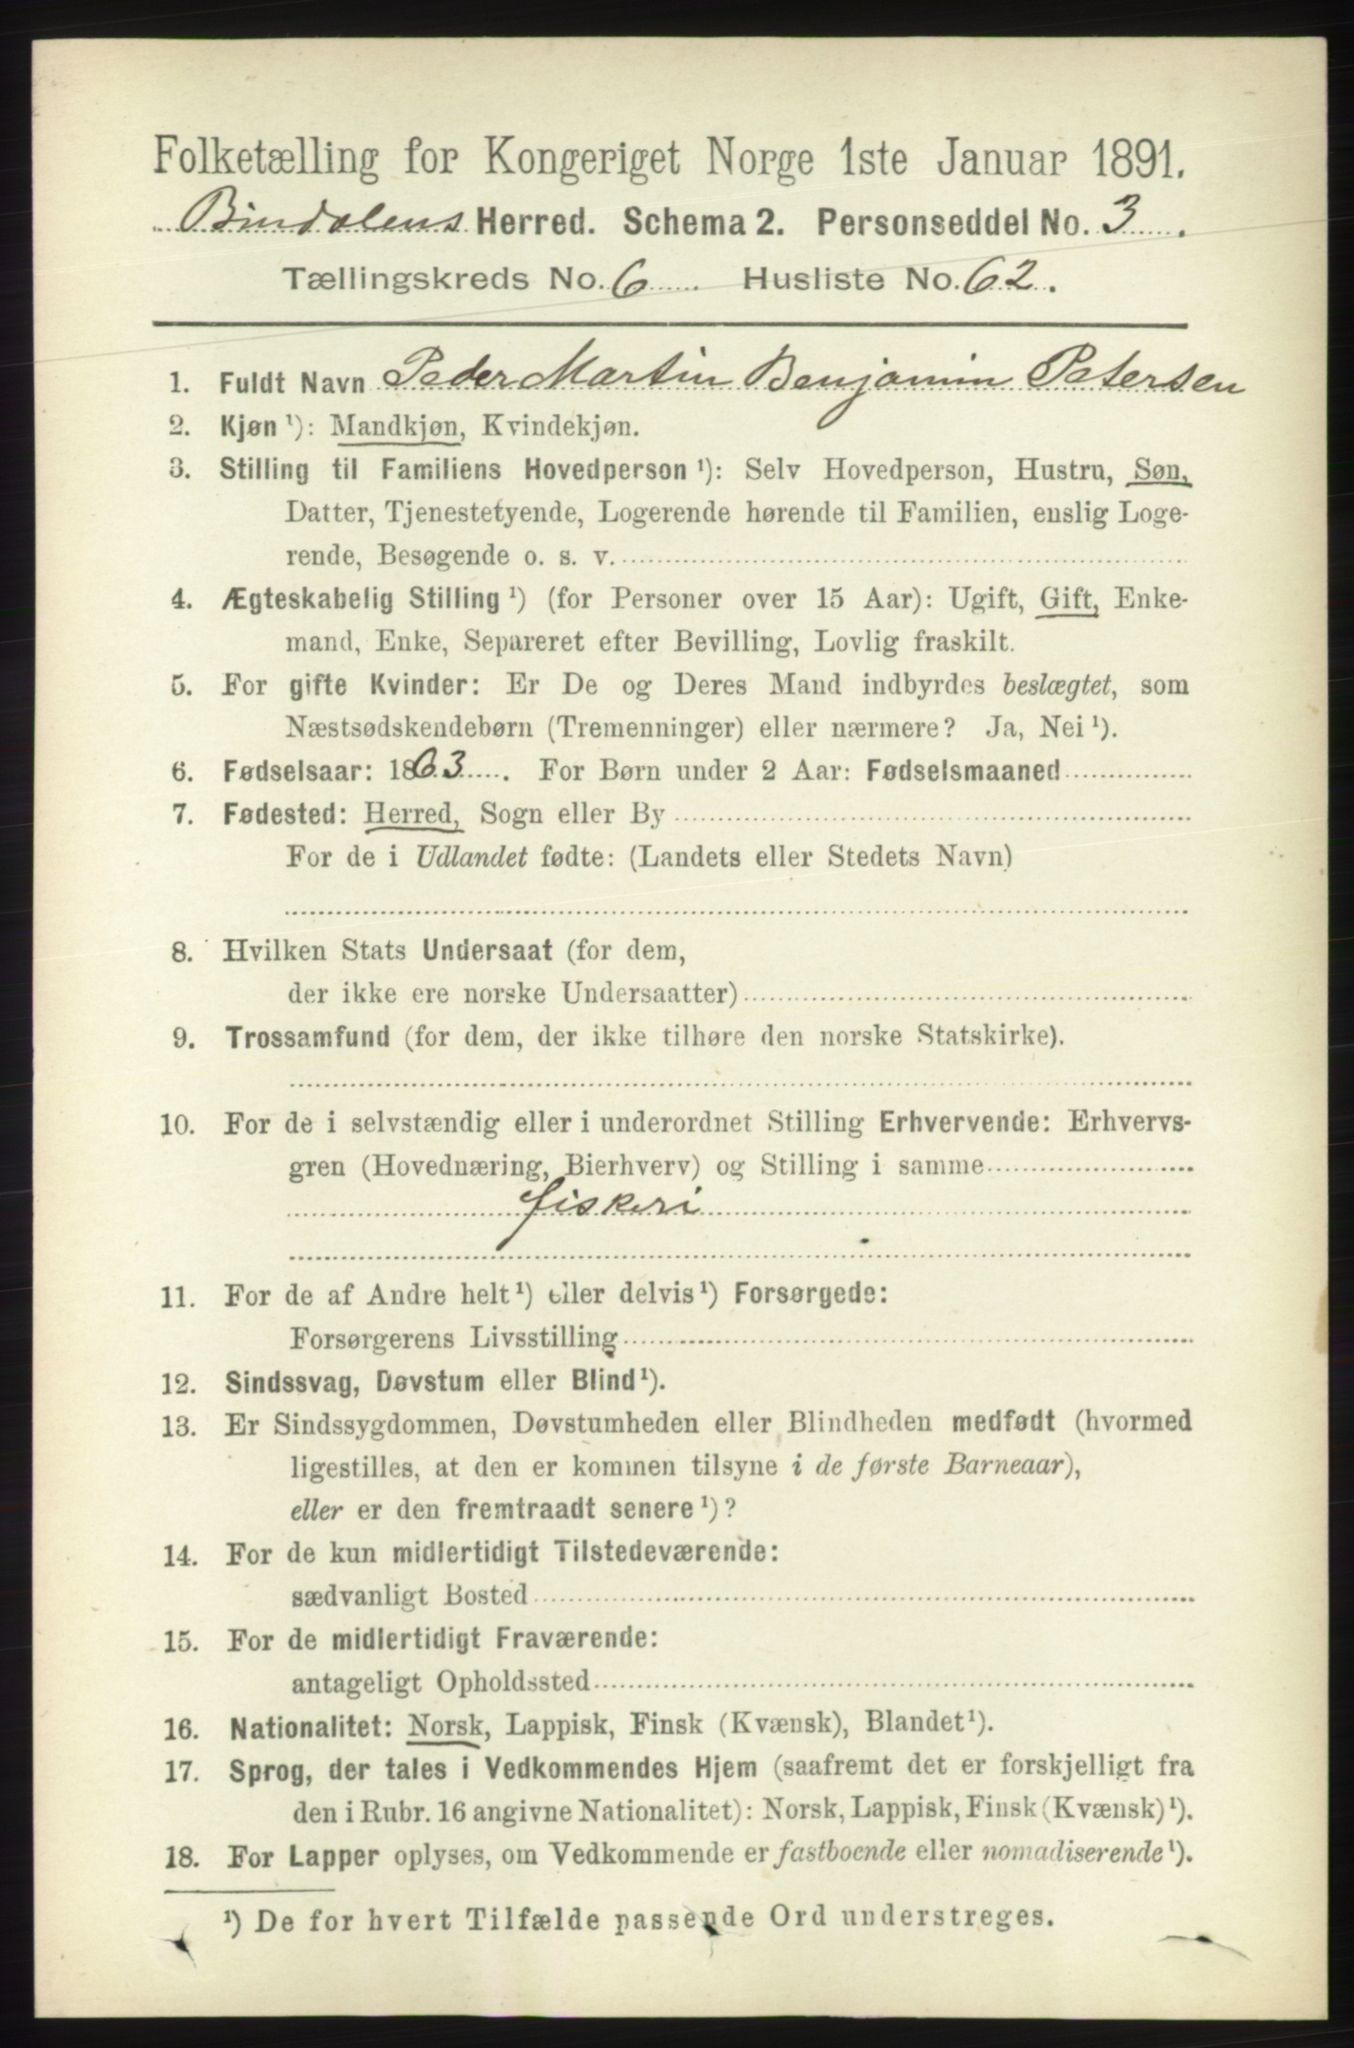 Folketælling for Kongeriget Norge 1ste Januar 1891.
Bindalens Herred. Schema 2. Personseddel No. 3.
Tællingskreds No. 6. Husliste No. 62.
1. Fuldt Navn Peder Martin Benjamin Petersen
2. Kjøn ¹): Mandkjøn, Kvindekjøn.
3. Stilling til Familiens Hovedperson ¹): Selv Hovedperson, Hustru, Søn,
Datter, Tjenestetyende, Logerende hørende til Familien, enslig Loge-
rende, Besøgende o. s. v.
4. Ægteskabelig Stilling ¹) (for Personer over 15 Aar): Ugift, Gift, Enke-
mand, Enke, Separeret efter Bevilling, Lovlig fraskilt.
5. For gifte Kvinder: Er De og Deres Mand indbyrdes beslægtet, som
Næstsødskendebørn (Tremenninger) eller nærmere? Ja, Nei ¹).
6. Fødselsaar: 1863. For Børn under 2 Aar: Fødselsmaaned
7. Fødested: Herred, Sogn eller By
For de i Udlandet fødte: (Landets eller Stedets Navn)
8. Hvilken Stats Undersaat (for dem,
der ikke ere norske Undersaatter)
9. Trossamfund (for dem, der ikke tilhøre den norske Statskirke).
10. For de i selvstændig eller i underordnet Stilling Erhvervende: Erhvervs-
gren (Hovednæring, Bierhverv) og Stilling i samme
fiskeri
11. For de af Andre helt ¹) eller delvis ¹) Forsørgede:
Forsørgerens Livsstilling
12. Sindssvag, Døvstum eller Blind ¹).
13. Er Sindssygdommen, Døvstumheden eller Blindheden medfødt (hvormed
ligestilles, at den er kommen tilsyne i de første Barneaar),
eller er den fremtraadt senere ¹)?
14. For de kun midlertidigt Tilstedeværende:
sædvanligt Bosted
15. For de midlertidigt Fraværende:
antageligt Opholdssted
16. Nationalitet: Norsk, Lappisk, Finsk (Kvænsk), Blandet ¹).
17. Sprog, der tales i Vedkommendes Hjem (saafremt det er forskjelligt fra
den i Rubr. 16 angivne Nationalitet): Norsk, Lappisk, Finsk (Kvænsk) ¹).
18. For Lapper oplyses, om Vedkommende er fastboende eller nomadiserende ¹).
¹) De for hvert Tilfælde passende Ord understreges.